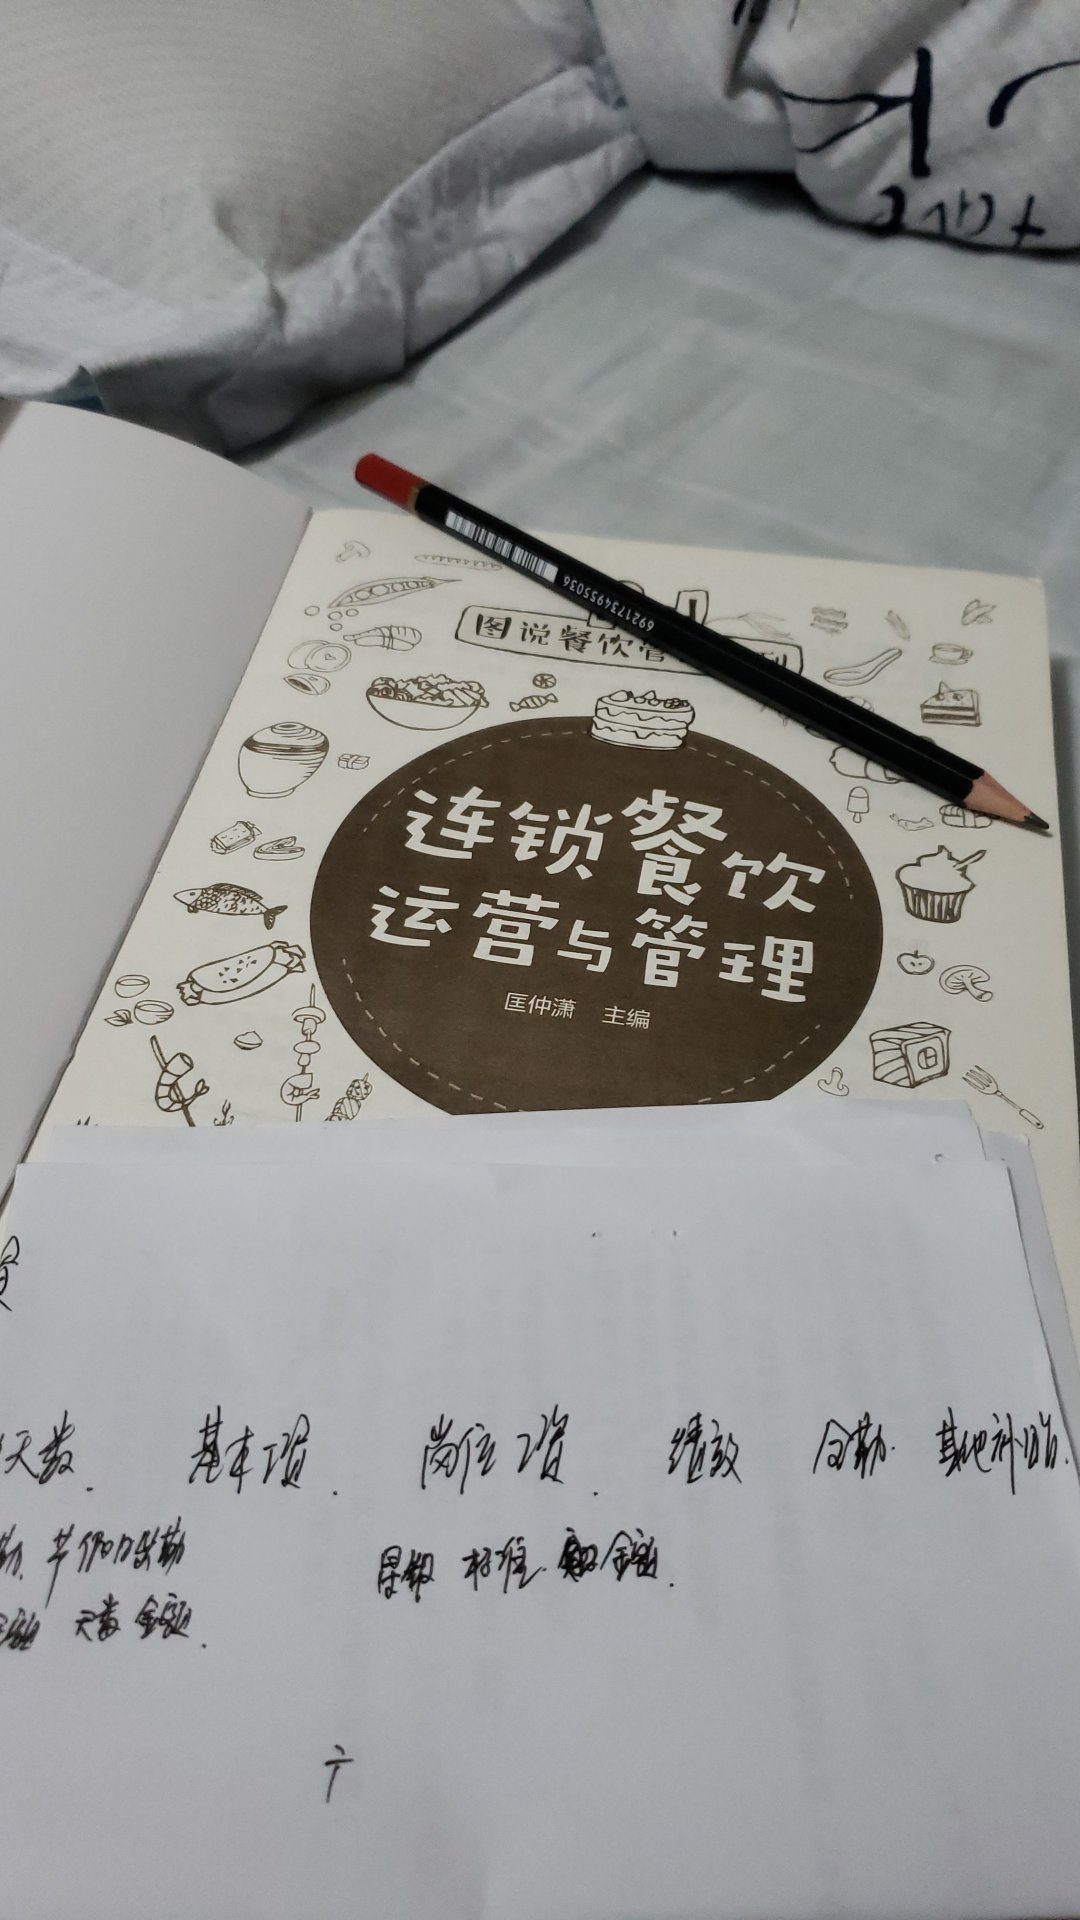 K
take
6921734955036
图说餐饮管 列
连锁餐饮
运营与管理
匡仲潇 主编
天数. 基本工资. 岗位工资. 绩效 全勤. 其他补贴.
勤. 节假日出勤
星级 标准. 金额.
金额 天数 金额.